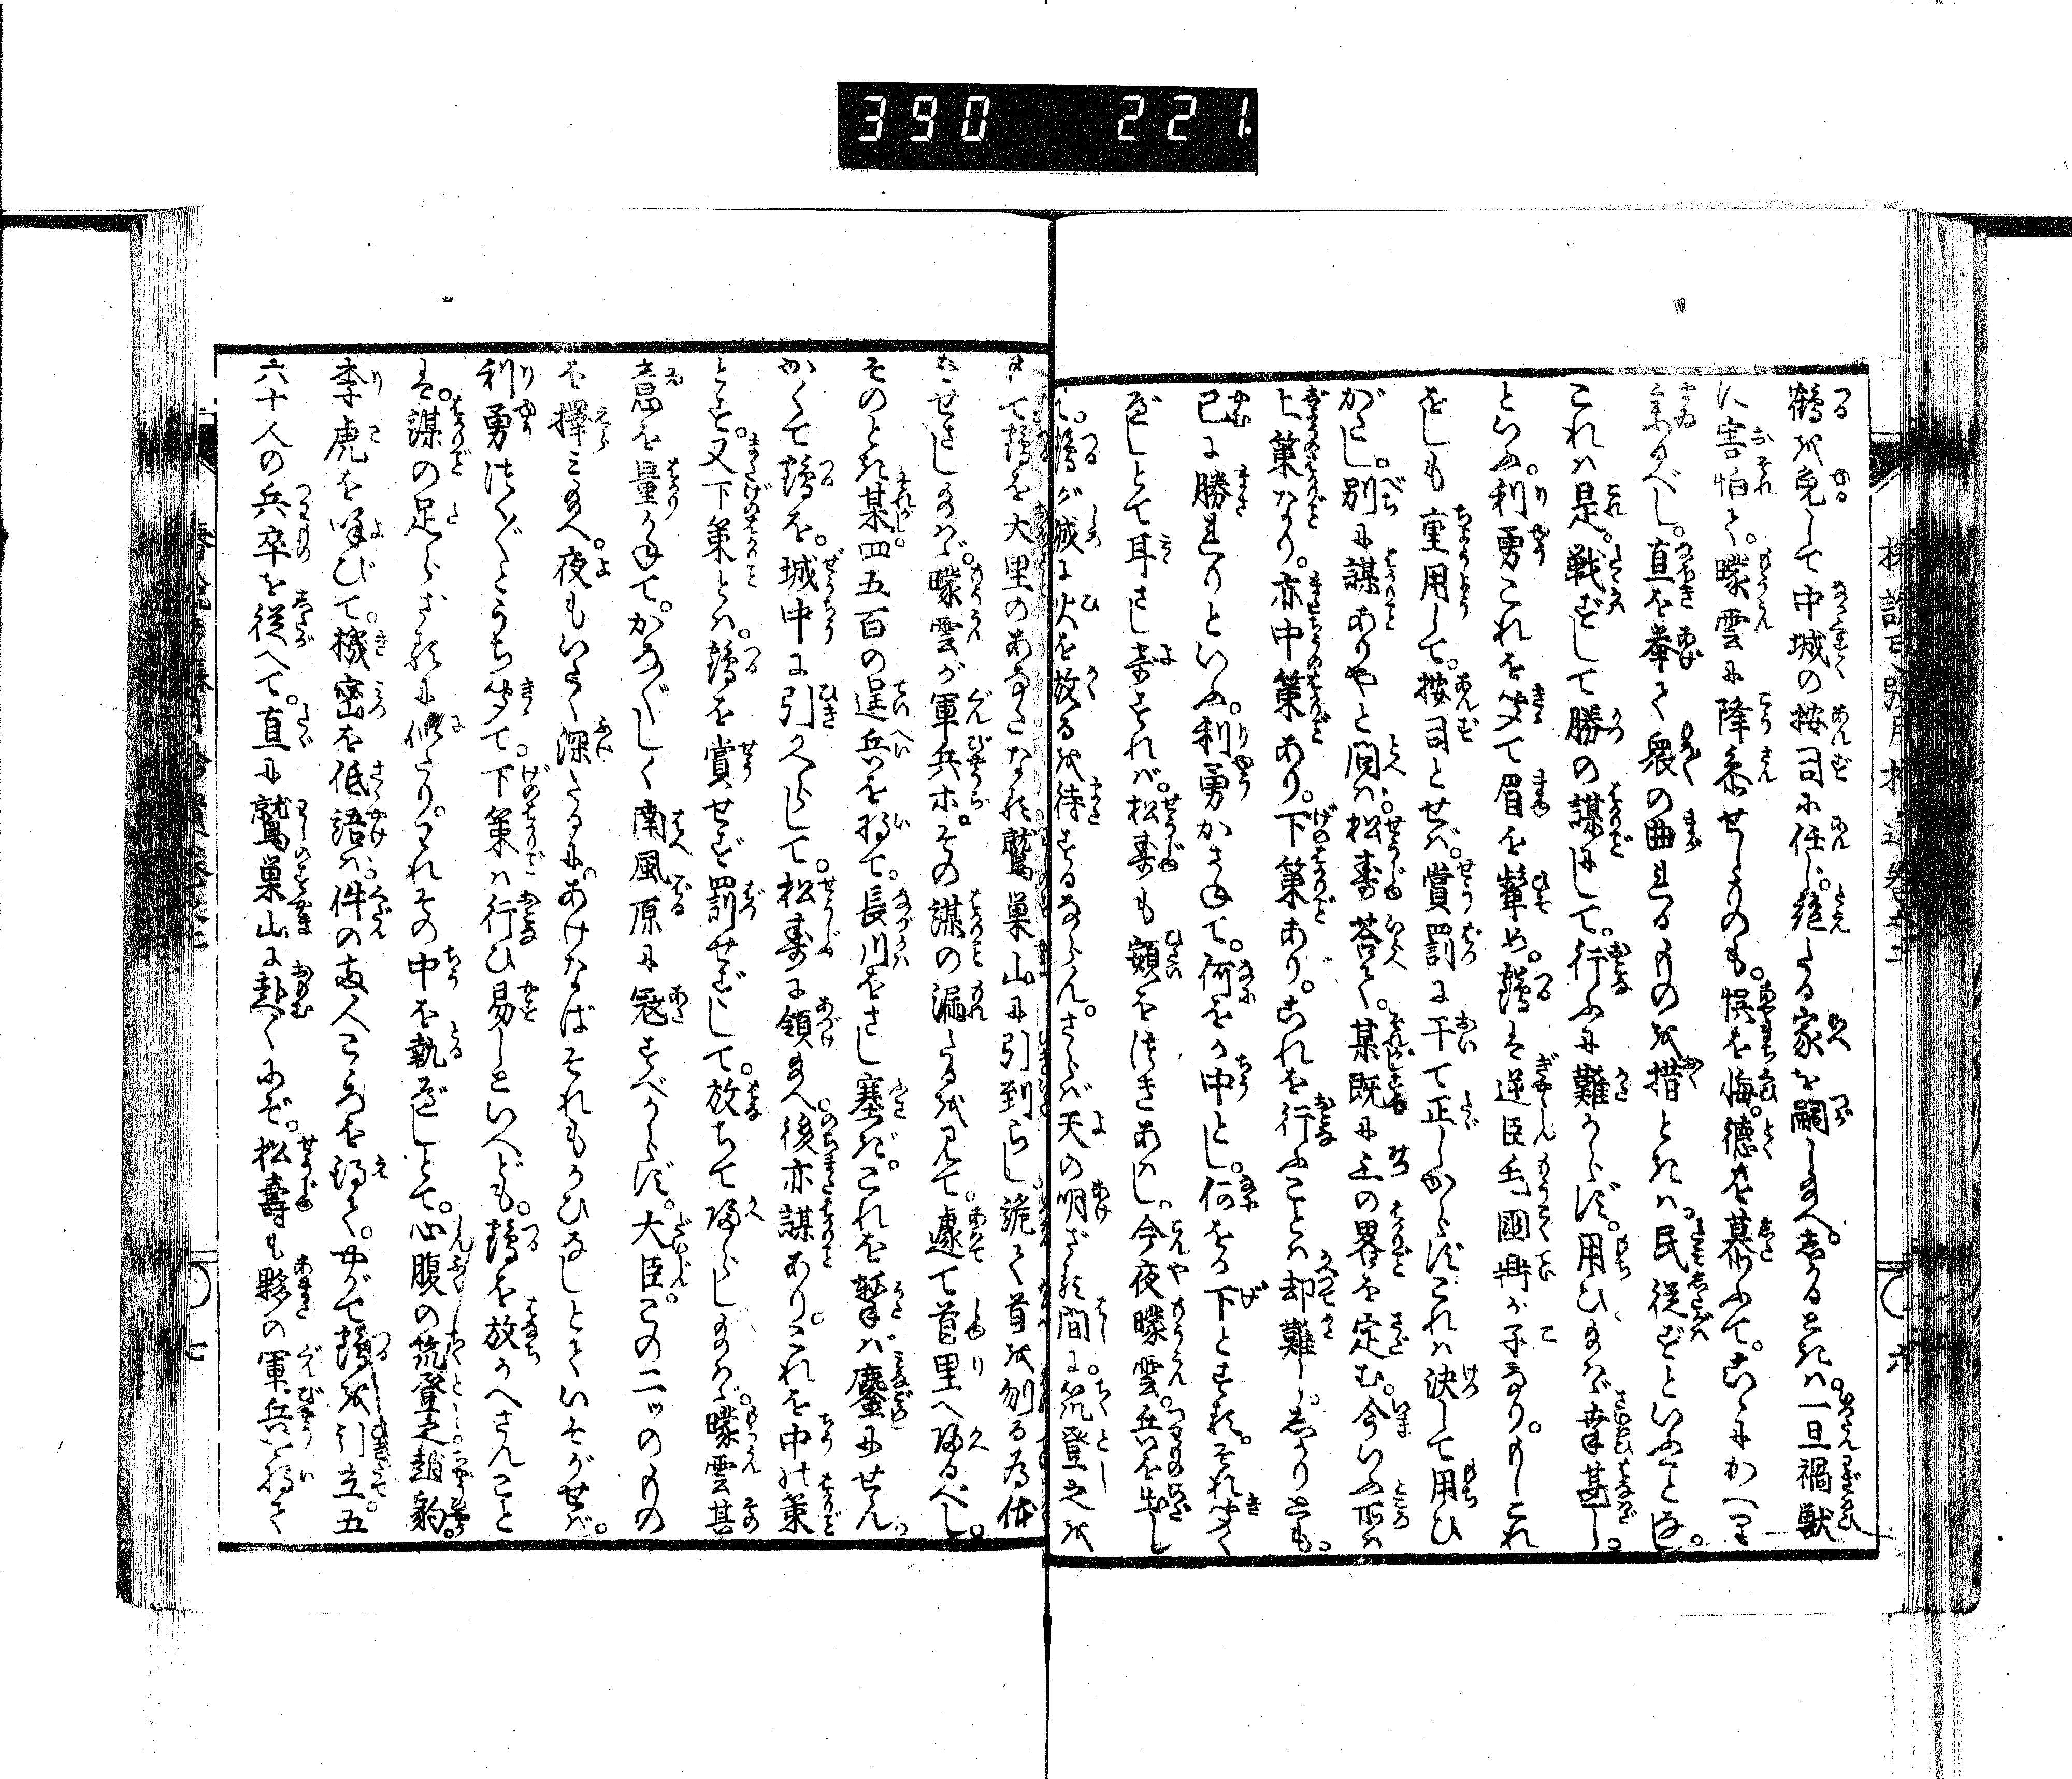 390 221
鶴を免して中城の按司に任じ。絶たる家を嗣し給へ。しかるときは。一旦禍獣
に害怕て。曚雲に降参せしものも。悞を悔。徳を慕ふて。こゝにかへり
参るべし。直を挙て衆の曲れるものを措ときは。民従ずといふことなし。
これは是。戦ずして勝の謀にして。行ふに難からず。用ひ給はゞ幸甚し。
といふ。利勇これを聞て眉を顰め。鶴は逆臣毛國鼎が子なり。もしこれ
をしも重用して。按司とせば。賞罰に于て正しからずこれは決して用ひ
がたし。別に謀ありやと問へば。松壽答て。某既に三の畧を定む。今いふ所は
上策なり。亦中策あり。下策あり。これを行ふことは却難し。しかりとも。
已に勝れりといふ。利勇かさねて。何をか中とし。何をか下とする。それ聞く
べしとて耳さし寄すれば。松壽も額をつきあはし。今夜曚雲。兵を出し
て。鶴が城に火を放るを待するならん。さらば天の明ざる間に。筑登之を
して鶴を大里のあなたなる鷲巣山に引到らし。詭て首を刎る為体
をせさし給はゞ。曚雲が軍兵ホ。その謀の漏たるを見て。遽て首里へ帰るべし。
そのとき某四五百の逞兵を将て。長川をさし塞ぎ。これを撃ば鏖にせん。
かくて鶴を。城中に引かへらして。松壽に領給へ後亦謀あり。これを中の策
とす。又下策とは。鶴を賞せず罰せずして。放ちて帰らし給はゞ。曚雲甚
意を量かねて。かろ〴〵しく南風原に寇すべからず。大臣。この二ッのもの
を擇み給へ。夜もいたく深たるに。あけなばそれもかひなしとていそがせば。
利勇つく〴〵とうち聞て。下策は行ひ易しといへども。鶴を放かへさんこと
は。謀の足らざるに似たり。われその中を執べしとて。心腹の筑登之趙豹。
李虎を呼びて。機密を低語ば。件の両人こゝろを得て。やがて鶴を引立。五
六十人の兵卒を従へて。直に鷲巣山に赴くにぞ。松壽も夥の軍兵を将て